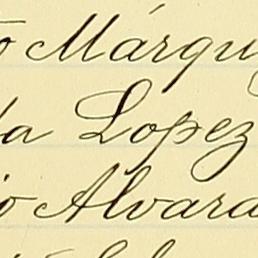 o Márqu
da Lopez
io Alvara